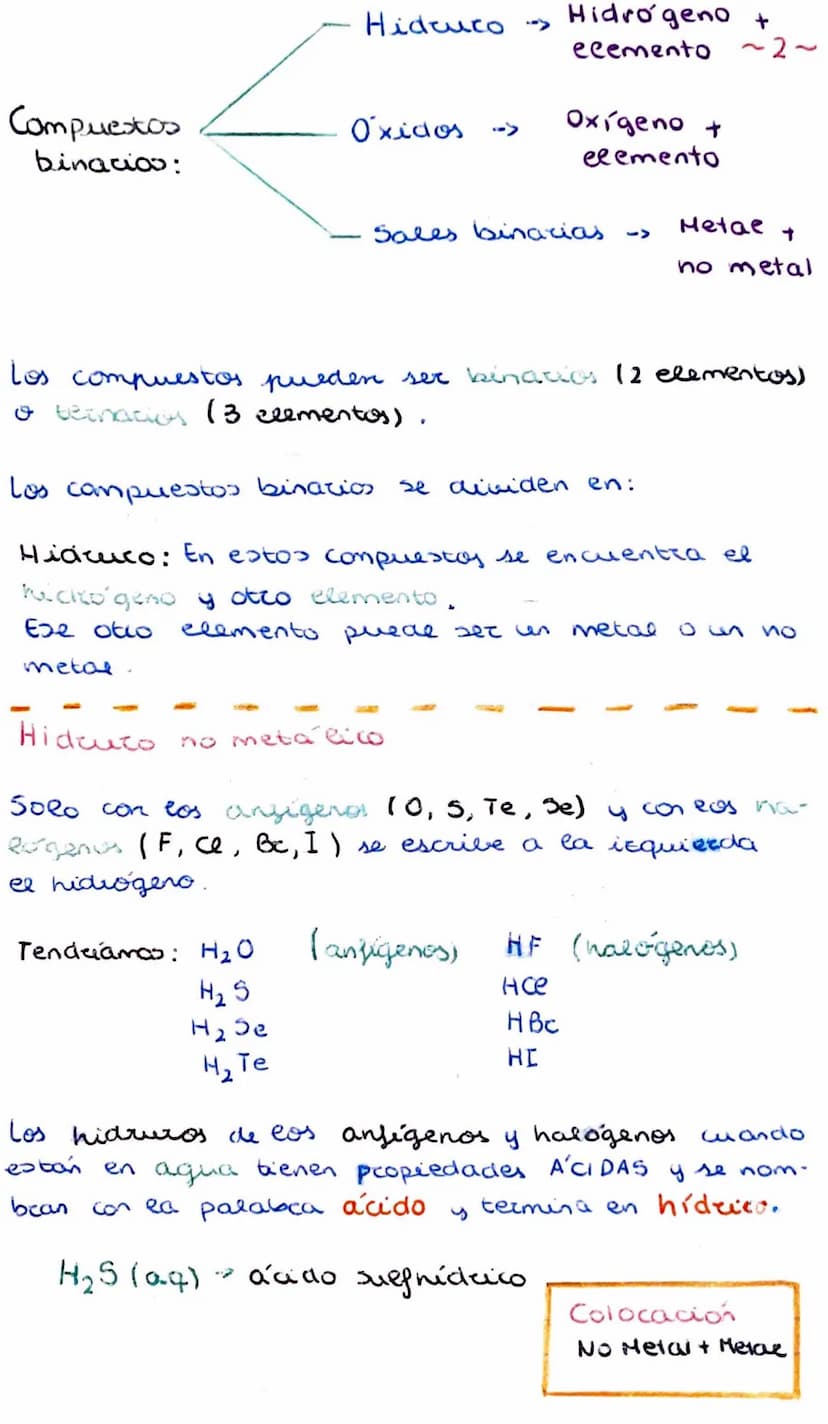 Hidruro -> Hidrógeno +
elemento ~2~
Compuestos
binarios:
Óxidos -> Oxígeno +
elemento
Sales binarias -> Metal +
no metal
Los compuestos pueden ser binarios (2 elementos)
o ternarios (3 elementos).
Los compuestos binarios se dividen en:
Hidruro: En estos compuestos se encuentra el
hidrógeno y otro elemento.
Ese otro elemento puede ser un metal o un no
metal.
Hidruro no metálico
Solo con los anfígenos (O, S, Te, Se) y con los ha-
lógenos (F, Cl, Br, I) se escribe a la izquierda
el hidrógeno.
Tendríamos: H₂O (anfígenos) HF (halógenos)
H₂S HCl
H₂Se HBr
H₂Te HI
Los hidruros de los anfígenos y halógenos cuando
están en agua tienen propiedades ÁCIDAS y se nom-
bran con la palabra ácido y termina en hídrico.
H₂S (aq) -> ácido sulfhídrico
Colocación
No Metal + Metal